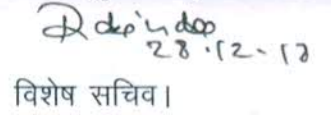 28.12.17
विशेष सचिव।